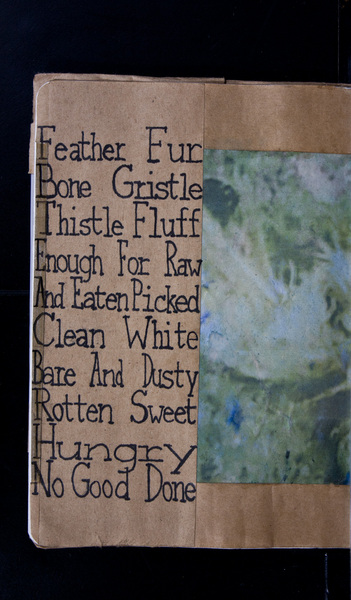 Feather Fur
Bone Gristle
Thistle Fluff
Enough For Raw
And Eaten Picked
Clean White
Bare And Dusty
Rotten Sweet
Hungry
No Good Done